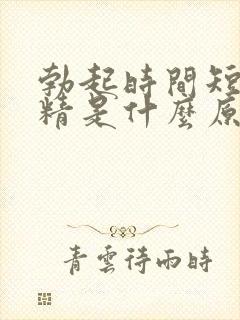 勃起時間短
精是什麼原
青雲待雨時